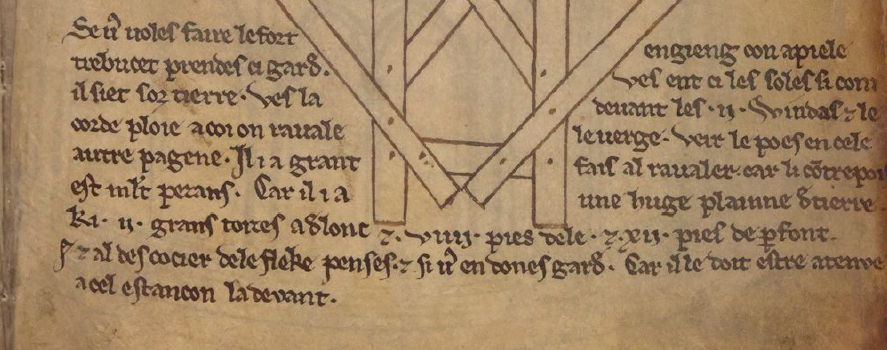 Se vͦ voles faire le fort engieng con apiele
trebucet prendes ci gard̄. Ves ent ci les soles si com
il siet sor tierre. Ves la devant les .ii. Windas ⁊ le
corde ploie a coi on ravale le verge. Veir le poes en cele
autre pagene. Il i a grant fais al ravaler. car li cōtrepoi
est ml̄t pezans. Car il i a une huge plainne d̄ tierre.
Ki .ii. grans toizes a d̄ lonc ⁊ .viiij. pies de le . ⁊ .xii. pies de ꝑfont.
⁊ al descocier de le fleke penses. ⁊ si vͦ en dones gard̄. Car il le doit estre atenue
a cel estancon la devant.